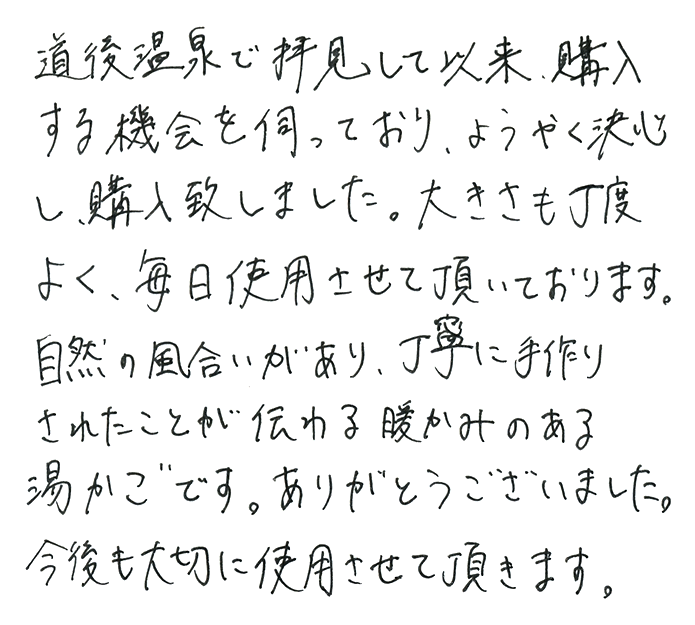 道後温泉で拝見して以来、購入
する機会を伺っており、ようやく決心
し、購入致しました。大きさも丁度
よく、毎日使用させて頂いております。
自然の風合いがあり、丁寧に手作り
されたことが伝わる暖かみのある
湯かごです。ありがとうございました。
今後も大切に使用させて頂きます。